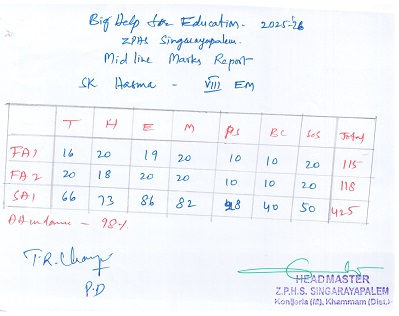 Big Help for Education. 2025-26
ZPHS Singarayapalem.
Mid line Marks Report
SK Hasma - VIII EM
T H E M PS BC SOS Total
FA1 16 20 19 20 10 10 20 115
FA2 20 18 20 20 10 10 20 118
SA1 66 73 86 82 28 40 50 425
- 98%
P.D
HEADMASTER
Z.P.H.S. SINGARAYAPALEM
Konijerla (M), Khammam (Dist.)